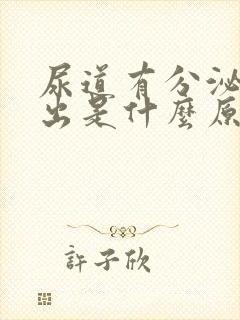 尿道有分泌
出是什麼原
許子欣